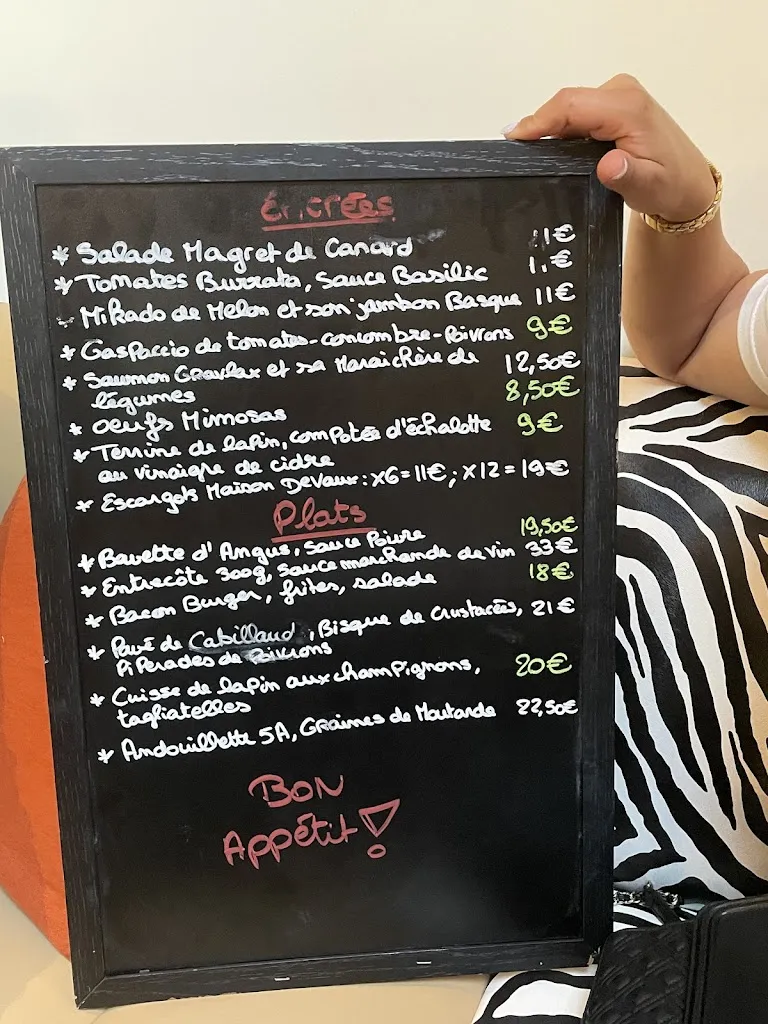 Entrées
* Salade Magret de Canard 11€
* Tomates Burrata, Sauce Basilic €
- Mikado de Melon et son jambon Basque 11€
* Gaspaccio de tomates-concombre-Poivrons 9€
* Saumon Gravlax et sa Maraichère de 12,50€
légumes
* Oeufs Mimosas 8,50€
* Terrine de lapin, compotée d'échalotte 9€
au vinaigre de cidre
* Escargots Maison Devaux : x6 = 11€ ; x12 = 19€
Plats
* Bavette d'Angus, sauce Poivre 19,50€
* Entrecôte 300g, sauce marchande de vin 33€
* Bacon Burger, frites, salade 18€
* Pavé de Cabillaud, Bisque de crustacées, 21€
PiPerades de Poivrons
* Cuisse de lapin aux champignons, 20€
tagliatelles
* Andouillette 5A, Graines de Moutarde 22,50€
BON
Appétit !